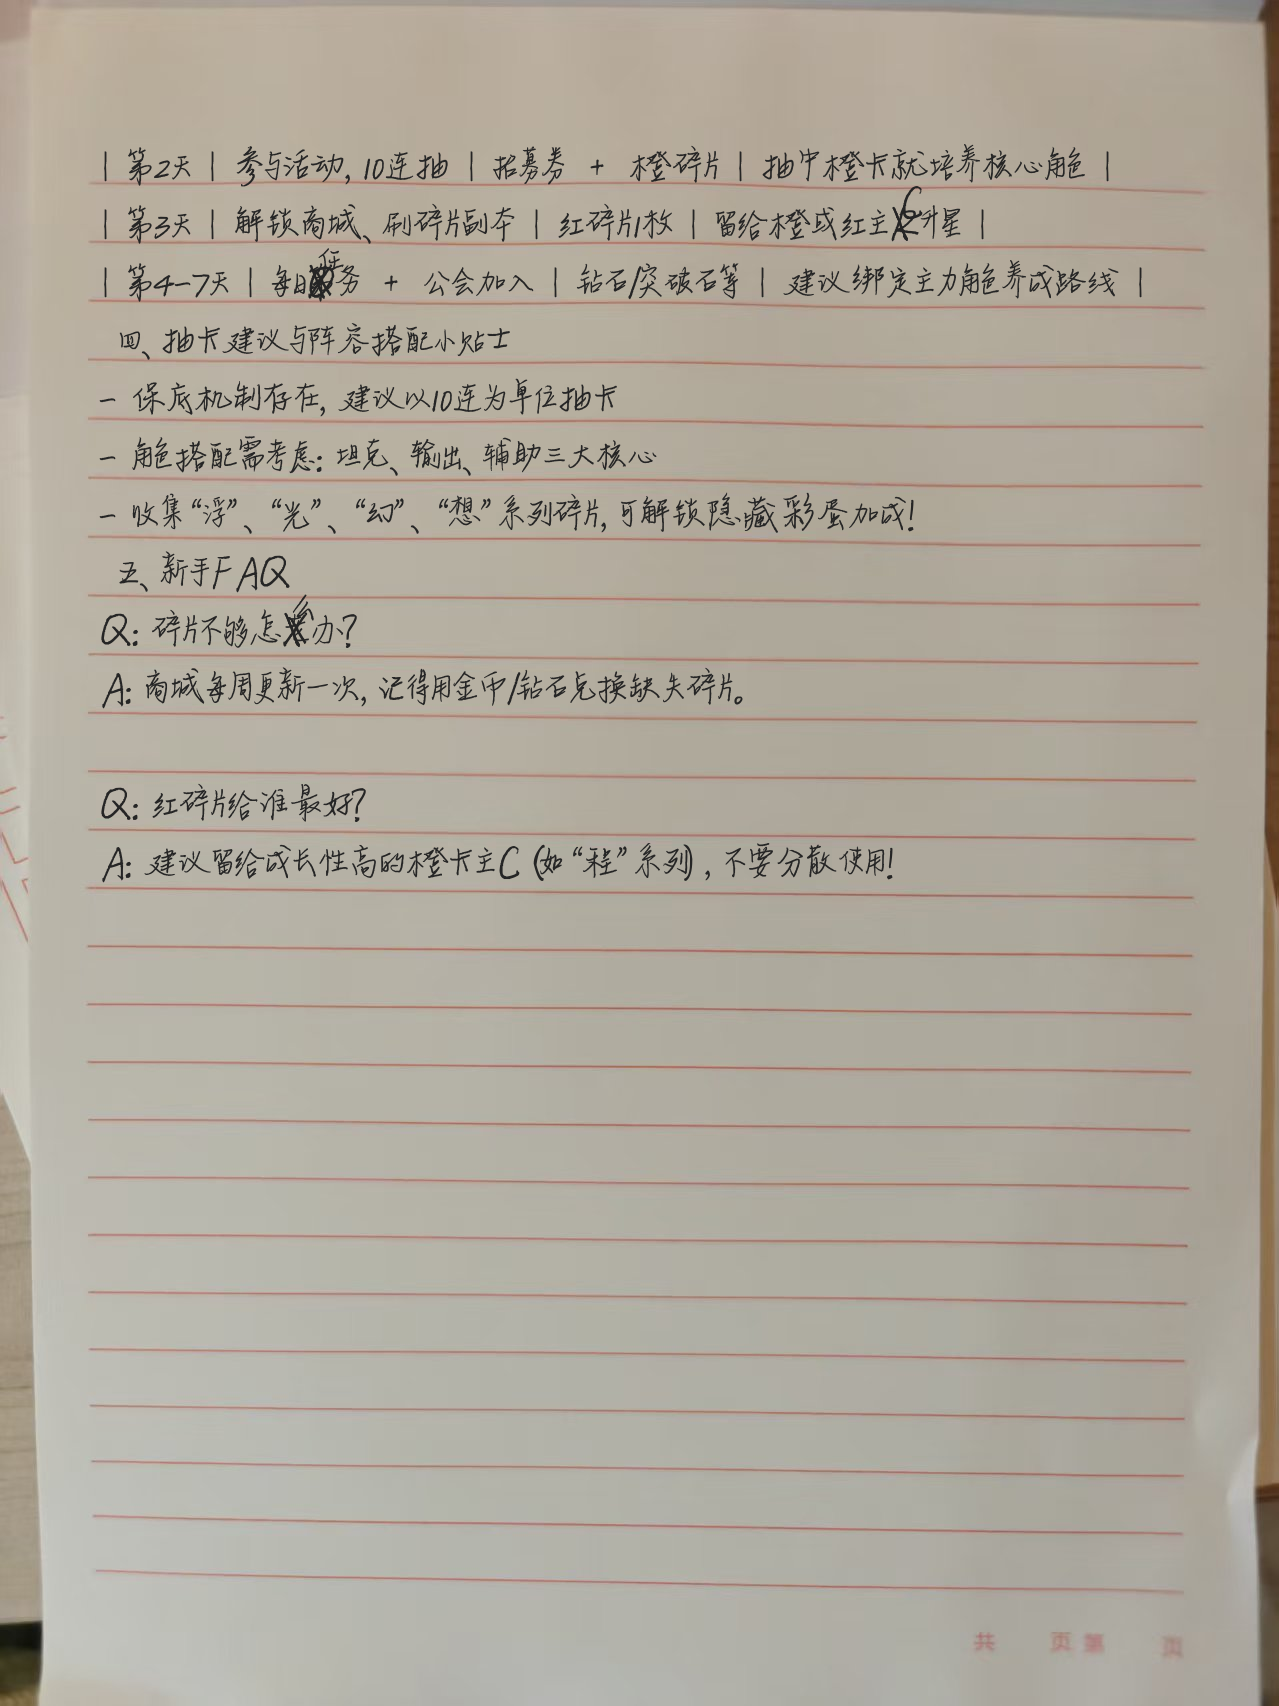 | 第2天 | 参与活动, 10连抽 | 招募券 + 橙碎片 | 抽中橙卡就培养核心角色 |
| 第3天 | 解锁商城、刷碎片副本 | 红碎片1枚 | 留给橙或红主C升星 |
| 第4-7天 | 每日任务 + 公会加入 | 钻石/突破石等 | 建议绑定主力角色养成路线 |
四、抽卡建议与阵容搭配小贴士
- 保底机制存在, 建议以10连为单位抽卡
- 角色搭配需考虑: 坦克、输出、辅助三大核心
- 收集“浮”、“光”、“幻”、“想”系列碎片, 可解锁隐藏彩蛋加成!
五、新手FAQ
Q: 碎片不够怎么办?
A: 商城每周更新一次, 记得用金币/钻石兑换缺失碎片。
Q: 红碎片给谁最好?
A: 建议留给成长性高的橙卡主C (如“程”系列), 不要分散使用!
共 页 第 页